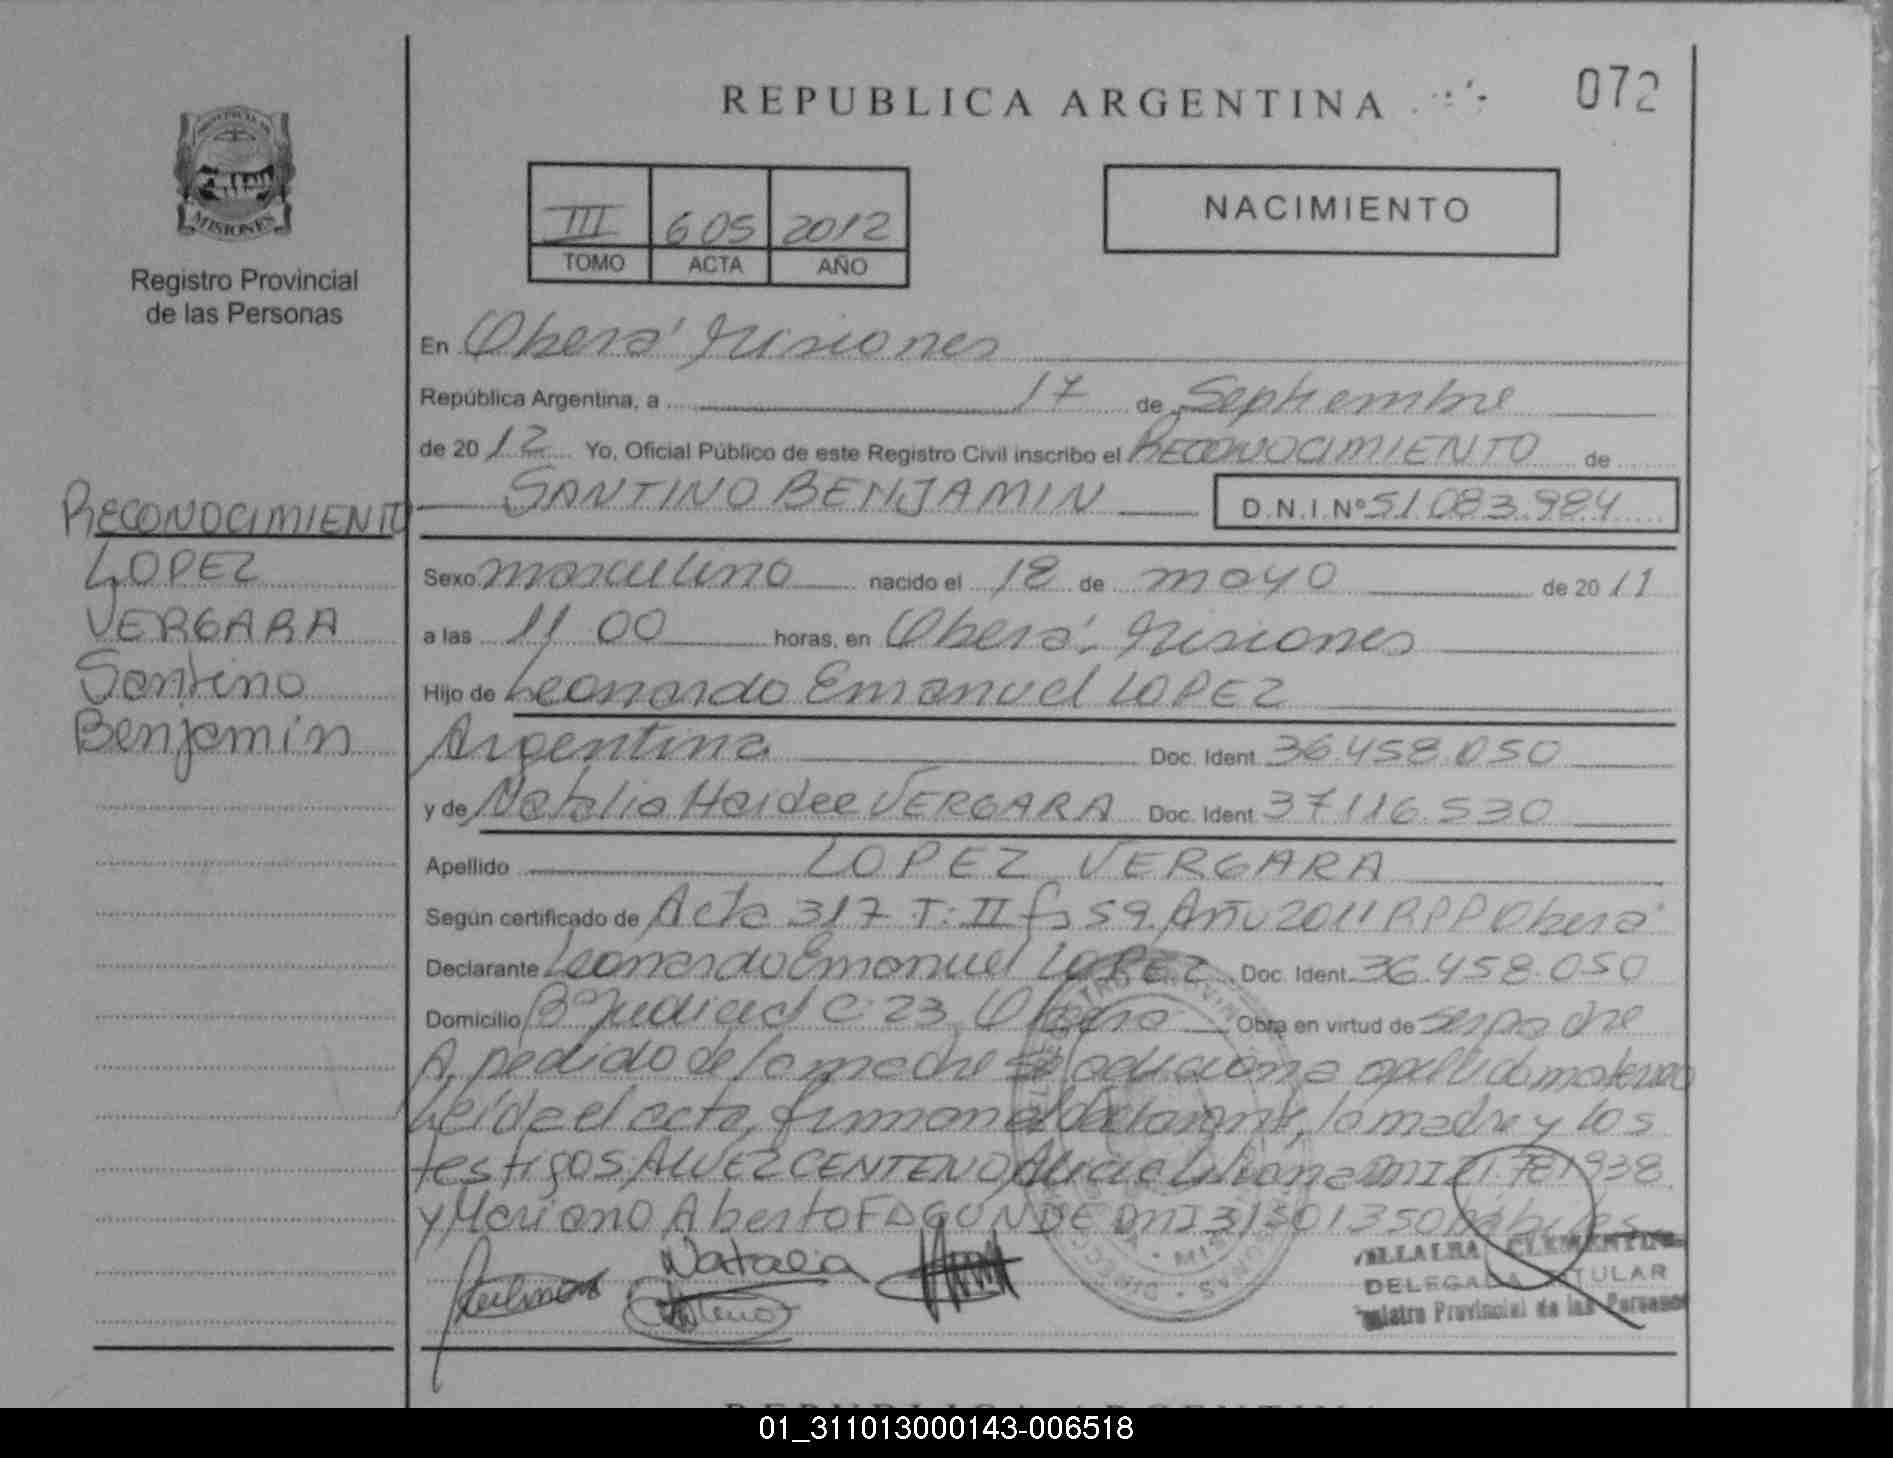 REPUBLICA ARGENTINA
072
PROVINCIA DE
MISIONES
Registro Provincial
de las Personas
III 605 2012
TOMO ACTA AÑO
NACIMIENTO
En Oberá Misiones
República Argentina, a 17 de Septiembre
de 2012 Yo, Oficial Público de este Registro Civil inscribo el RECONOCIMIENTO de
SANTINO BENJAMIN D.N.I.Nº 51.083.984
RECONOCIMIENTO
LOPEZ
VERGARA
Santino
Benjamin
Sexo masculino nacido el 18 de mayo de 2011
a las 11 00 horas, en Oberá, Misiones
Hijo de Leonardo Emanuel LOPEZ
Argentina Doc. Ident. 36.458.050
y de Natalia Haidee VERGARA Doc. Ident. 37116.530
Apellido LOPEZ VERGARA
Según certificado de Acta 317 T: II fs 59. Año 2011 RPP Oberá
Declarante Leonardo Emanuel LOPEZ Doc. Ident. 36.458.050
Domicilio Bº Judicial C: 23 Obera Obra en virtud de ser padre
A pedido de la madre se adiciona apellido materno
Leída el acta, firman el declarante, la madre y los
testigos: ALVEZ CENTENO Alicia Liliana DNI 21.781938
y Mariano Alberto FAGUNDE DNI 31301350 hábiles
Natalia
VILLALBA CLEMENTINA
DELEGADA TITULAR
Registro Provincial de las Personas
REPUBLICA ARGENTINA
01_311013000143-006518